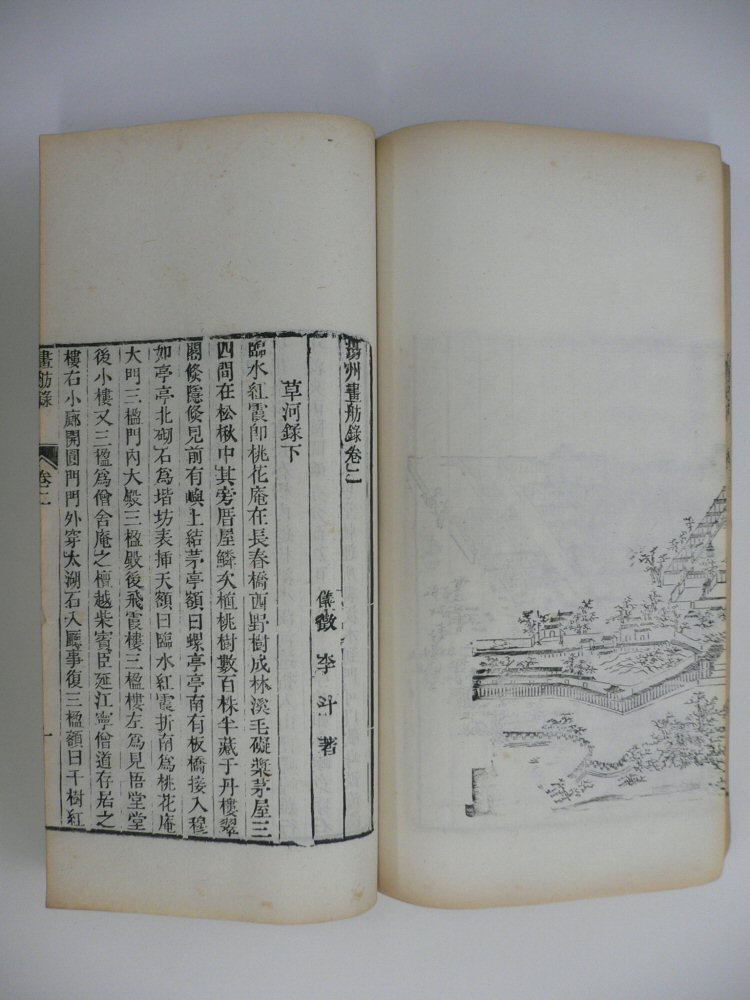 揚州畫舫錄卷二
儀徵李斗著
草河錄下
臨水紅霞卽桃花庵在長春橋西野樹成林溪毛礙槳茅屋三
四間在松楸中其旁厝屋鱗次植桃樹數百株半藏于丹樓翠
閣倐隱倐見前有嶼上結茅亭額曰螺亭亭南有板橋接入穆
如亭亭北砌石爲堦坊表揷天額曰臨水紅霞折南爲桃花庵
大門三楹門內大殿三楹殿後飛霞樓三楹樓左爲見悟堂堂
後小樓又三楹爲僧舍庵之檀越柴賓臣延江寧僧道存居之
樓右小廊開圓門門外穿太湖石入廳事復三楹額曰千樹紅
畫舫錄
卷二
一